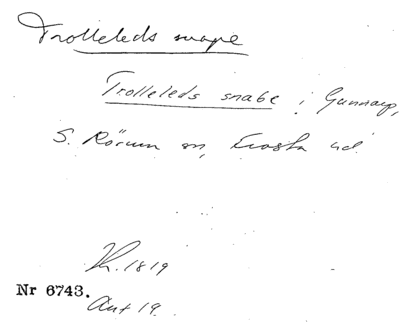 Trolleleds snape
Trolleleds snabe i Gunnarp,
S. Rörum sn, Frosta hd.
Kr. 1819
Nr 6743.
Ant 19.